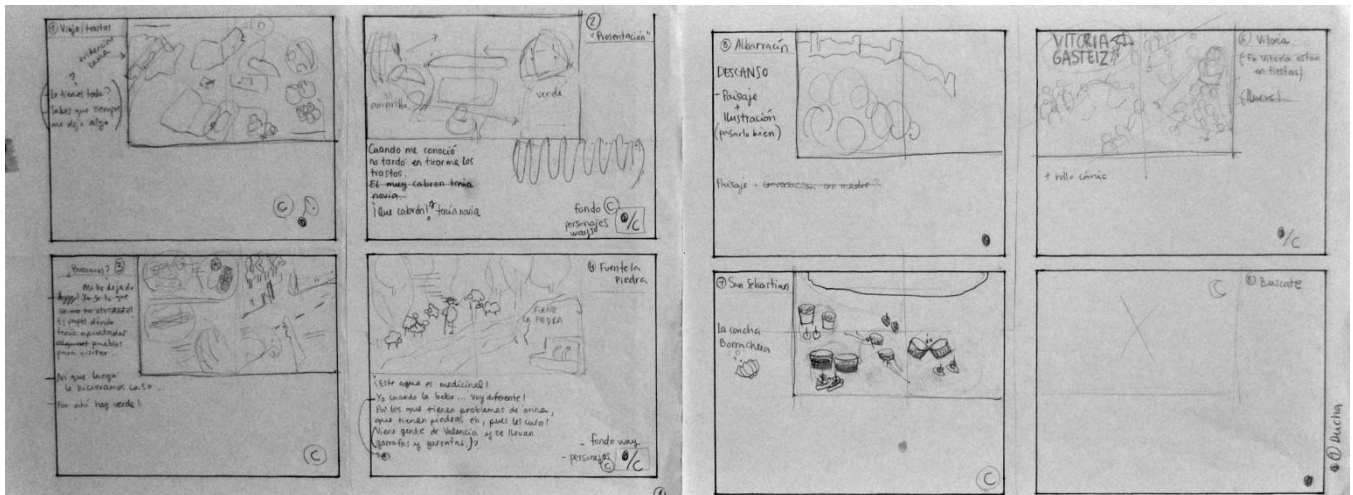 ① Viaje/trastos
evidenciar
cama
?
Lo tienes todo?
Sabes que siempre
me dejo algo
C
②
"Presentación"
amarillo
verde
Cuando me conoció
no tardó en tirarme los
trastos.
El muy cabron tenia
novia
¡Que cabrón! tenía novia
fondo C
personajes
ways
/C
③
Ya se lo que
se me ha olvidado!
El papel donde
tenía apuntados
pueblos
para visitar...
Ni que luego
le hicieramos caso...
Por ahí hay verde!
C
④ Fuente la
Piedra
FUENTE
LA PIEDRA
¡Este agua es medicinal!
Yo cuando la bebo... Voy diferente!
Por los que tienen problemas de orina,
que tienen piedras eh, pues les cura!
Viene gente de Valencia y se llevan
garrafas y garrafas.
- fondo way
- personajes C
/C
⑤ Albarracín
DESCANSO
- Paisaje
+
Ilustración
(pasarlo bien)
Paisaje + conversación con madre?
VITORIA
GASTEIZ
⑥ Vitoria
(En Vitoria están
en fiestas)
¡Llueve!
+ rollo cómic
/C
⑦ San Sebastian
La concha
Borrachera
C
⑧ Buscate
① Ducha